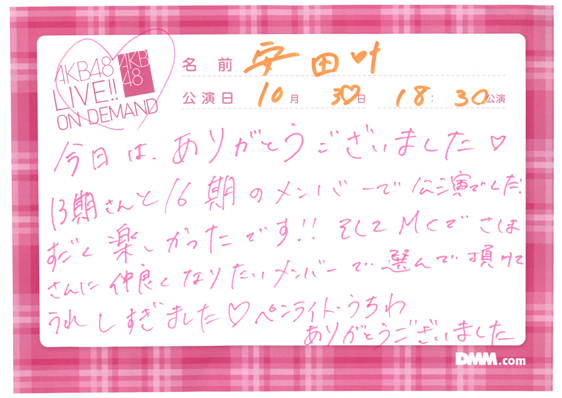 AKB48
LIVE!!
ON DEMAND
AKB
48
名前 安田叶
公演日 10月 30日 18:30公演
今日は、ありがとうございました♡
13期さんと16期のメンバーで公演でしだ
すごく楽しかったです!! そしてMCでさほ
さんに仲良くなりたいメンバーで選んで頂けて
うれしすぎました♡ペンライト・うちわ
ありがとうございました
DMM.com